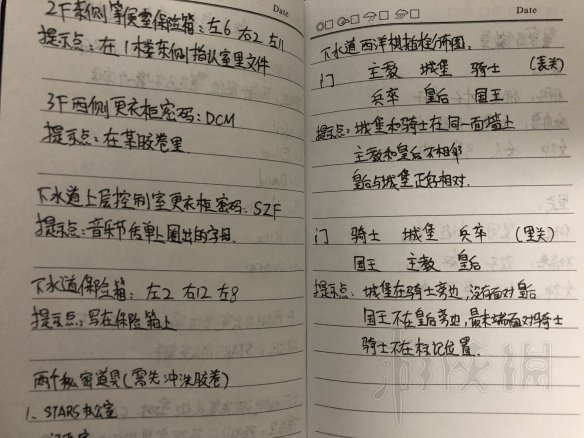 Date
2F东侧等候室保险箱:左6 右2 左11
提示点:在1楼东侧指认室里文件
3F西侧更衣柜密码:DCM
提示点:在某胶卷里
下水道上层控制室更衣柜密码:SZF
提示点:音乐节传单上圈出的字母.
下水道保险箱:左2 右12 左8
提示点:写在保险箱上
两个秘密道具(需先冲洗胶卷)
1、STARS办公室
Date
下水道西洋棋插栓所图:
门 主教 城堡 骑士 (表关)
兵卒 皇后 国王
提示点:城堡和骑士在同一面墙上
主教和皇后不相邻
皇后与城堡正好相对.
门 骑士 城堡 兵卒 (里关)
国王 主教 皇后
提示点:城堡在骑士旁边,没有面对皇后
国王不在皇后旁边,最末端面对骑士
骑士不在标记位置.